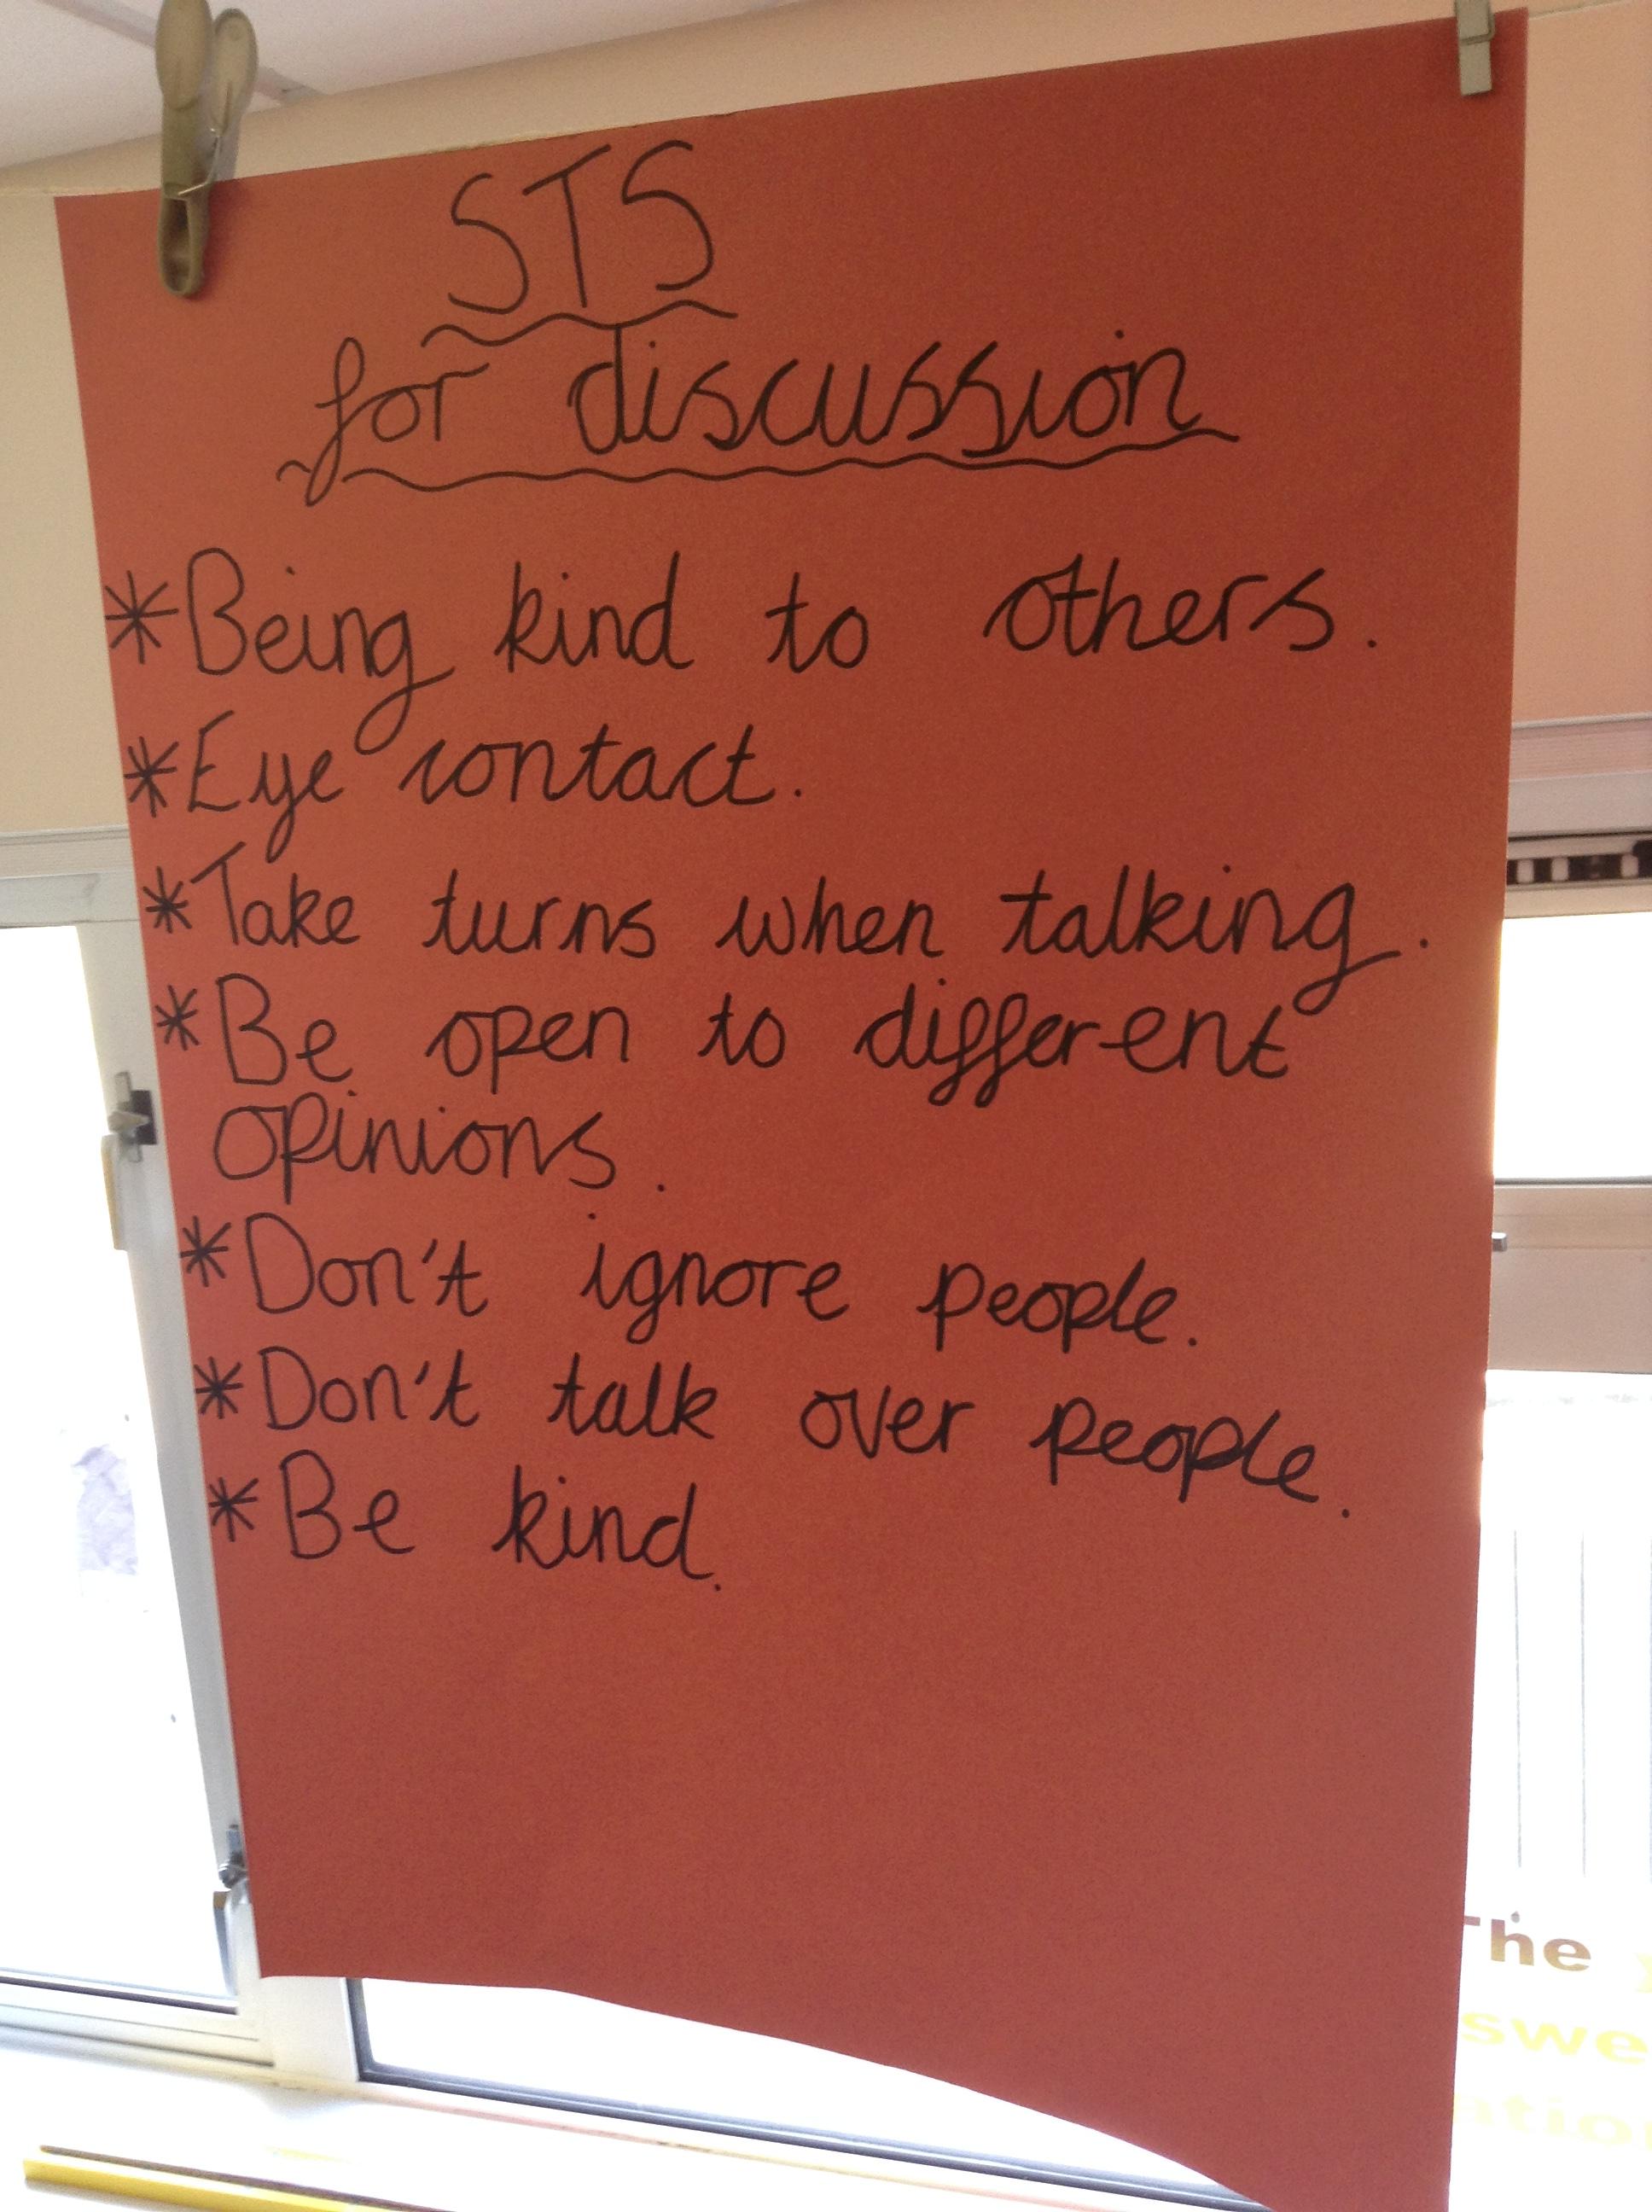 STS
for discussion
*Being kind to others.
*Eye contact.
*Take turns when talking.
*Be open to different
opinions.
*Don't ignore people.
*Don't talk over people.
*Be kind.
The